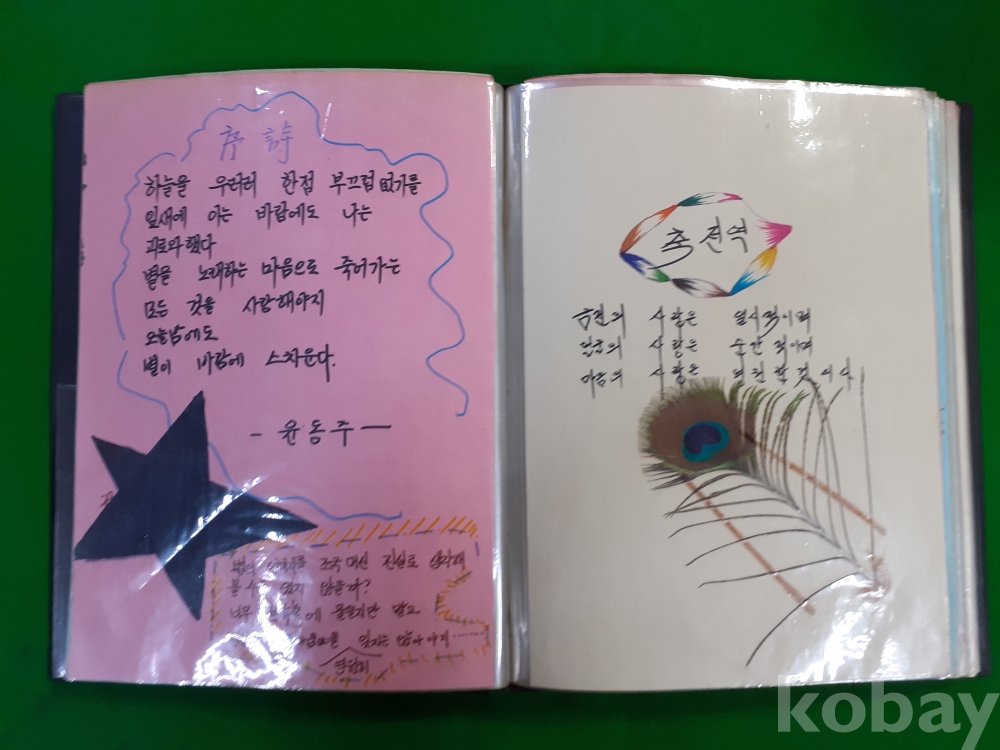 序詩
하늘을 우러러 한점 부끄럼 없기를
잎새에 이는 바람에도 나는
괴로와했다
별을 노래하는 마음으로 죽어가는
모든 것을 사랑해야지
오늘밤에도
별이 바람에 스치운다.
- 윤동주 -
조국 대신 진실로 생각해
볼 수 있지 않을까?
너무 에 물들지만 말고
잊지는 말아야지......
축 전역
육체의 사랑은 일시적이며
입술의 사랑은 순간적이며
마음의 사랑은 영원할 것이다.
kobay